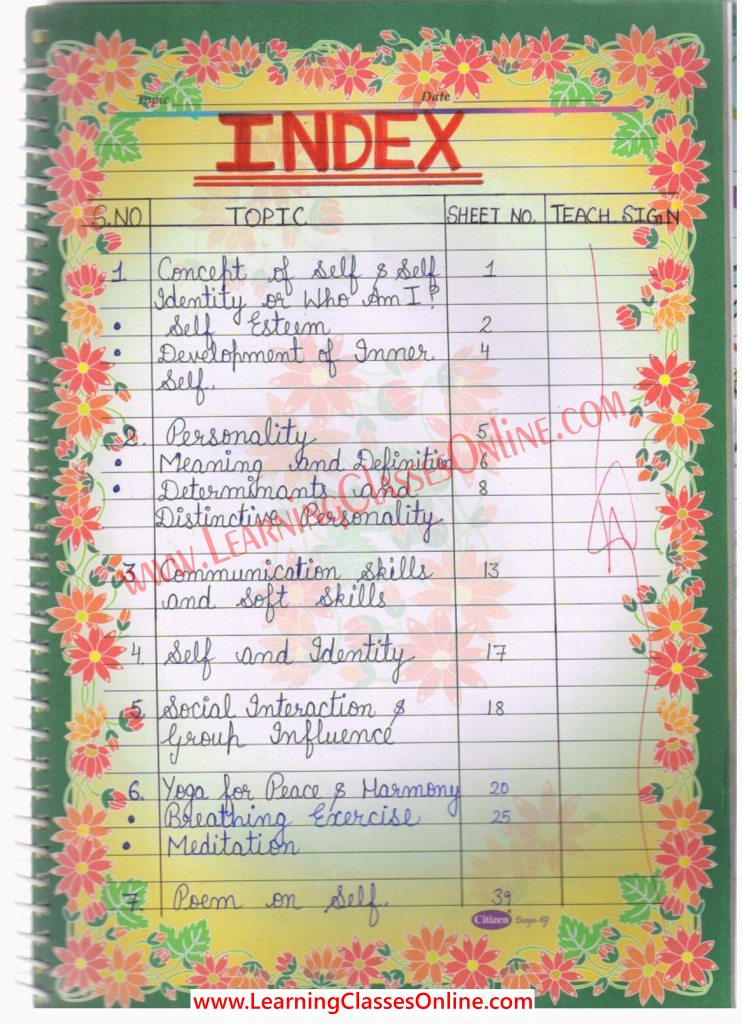 Topic Date
INDEX
S.NO TOPIC SHEET NO. TEACH. SIGN
1 Concept of Self & Self 1
Identity or Who Am I?
• Self Esteem 2
• Development of Inner 4
Self.
2. Personality 5
• Meaning and Definition 6
• Determinants and 8
Distinctive Personality
www.LearningClassesOnline.com
3. Communication Skills 13
and Soft Skills
4. Self and Identity 17
5. Social Interaction & 18
Group Influence
6. Yoga for Peace & Harmony 20
• Breathing Exercise 25
• Meditation
7. Poem on Self. 39
Citizen Design-89
www.LearningClassesOnline.com